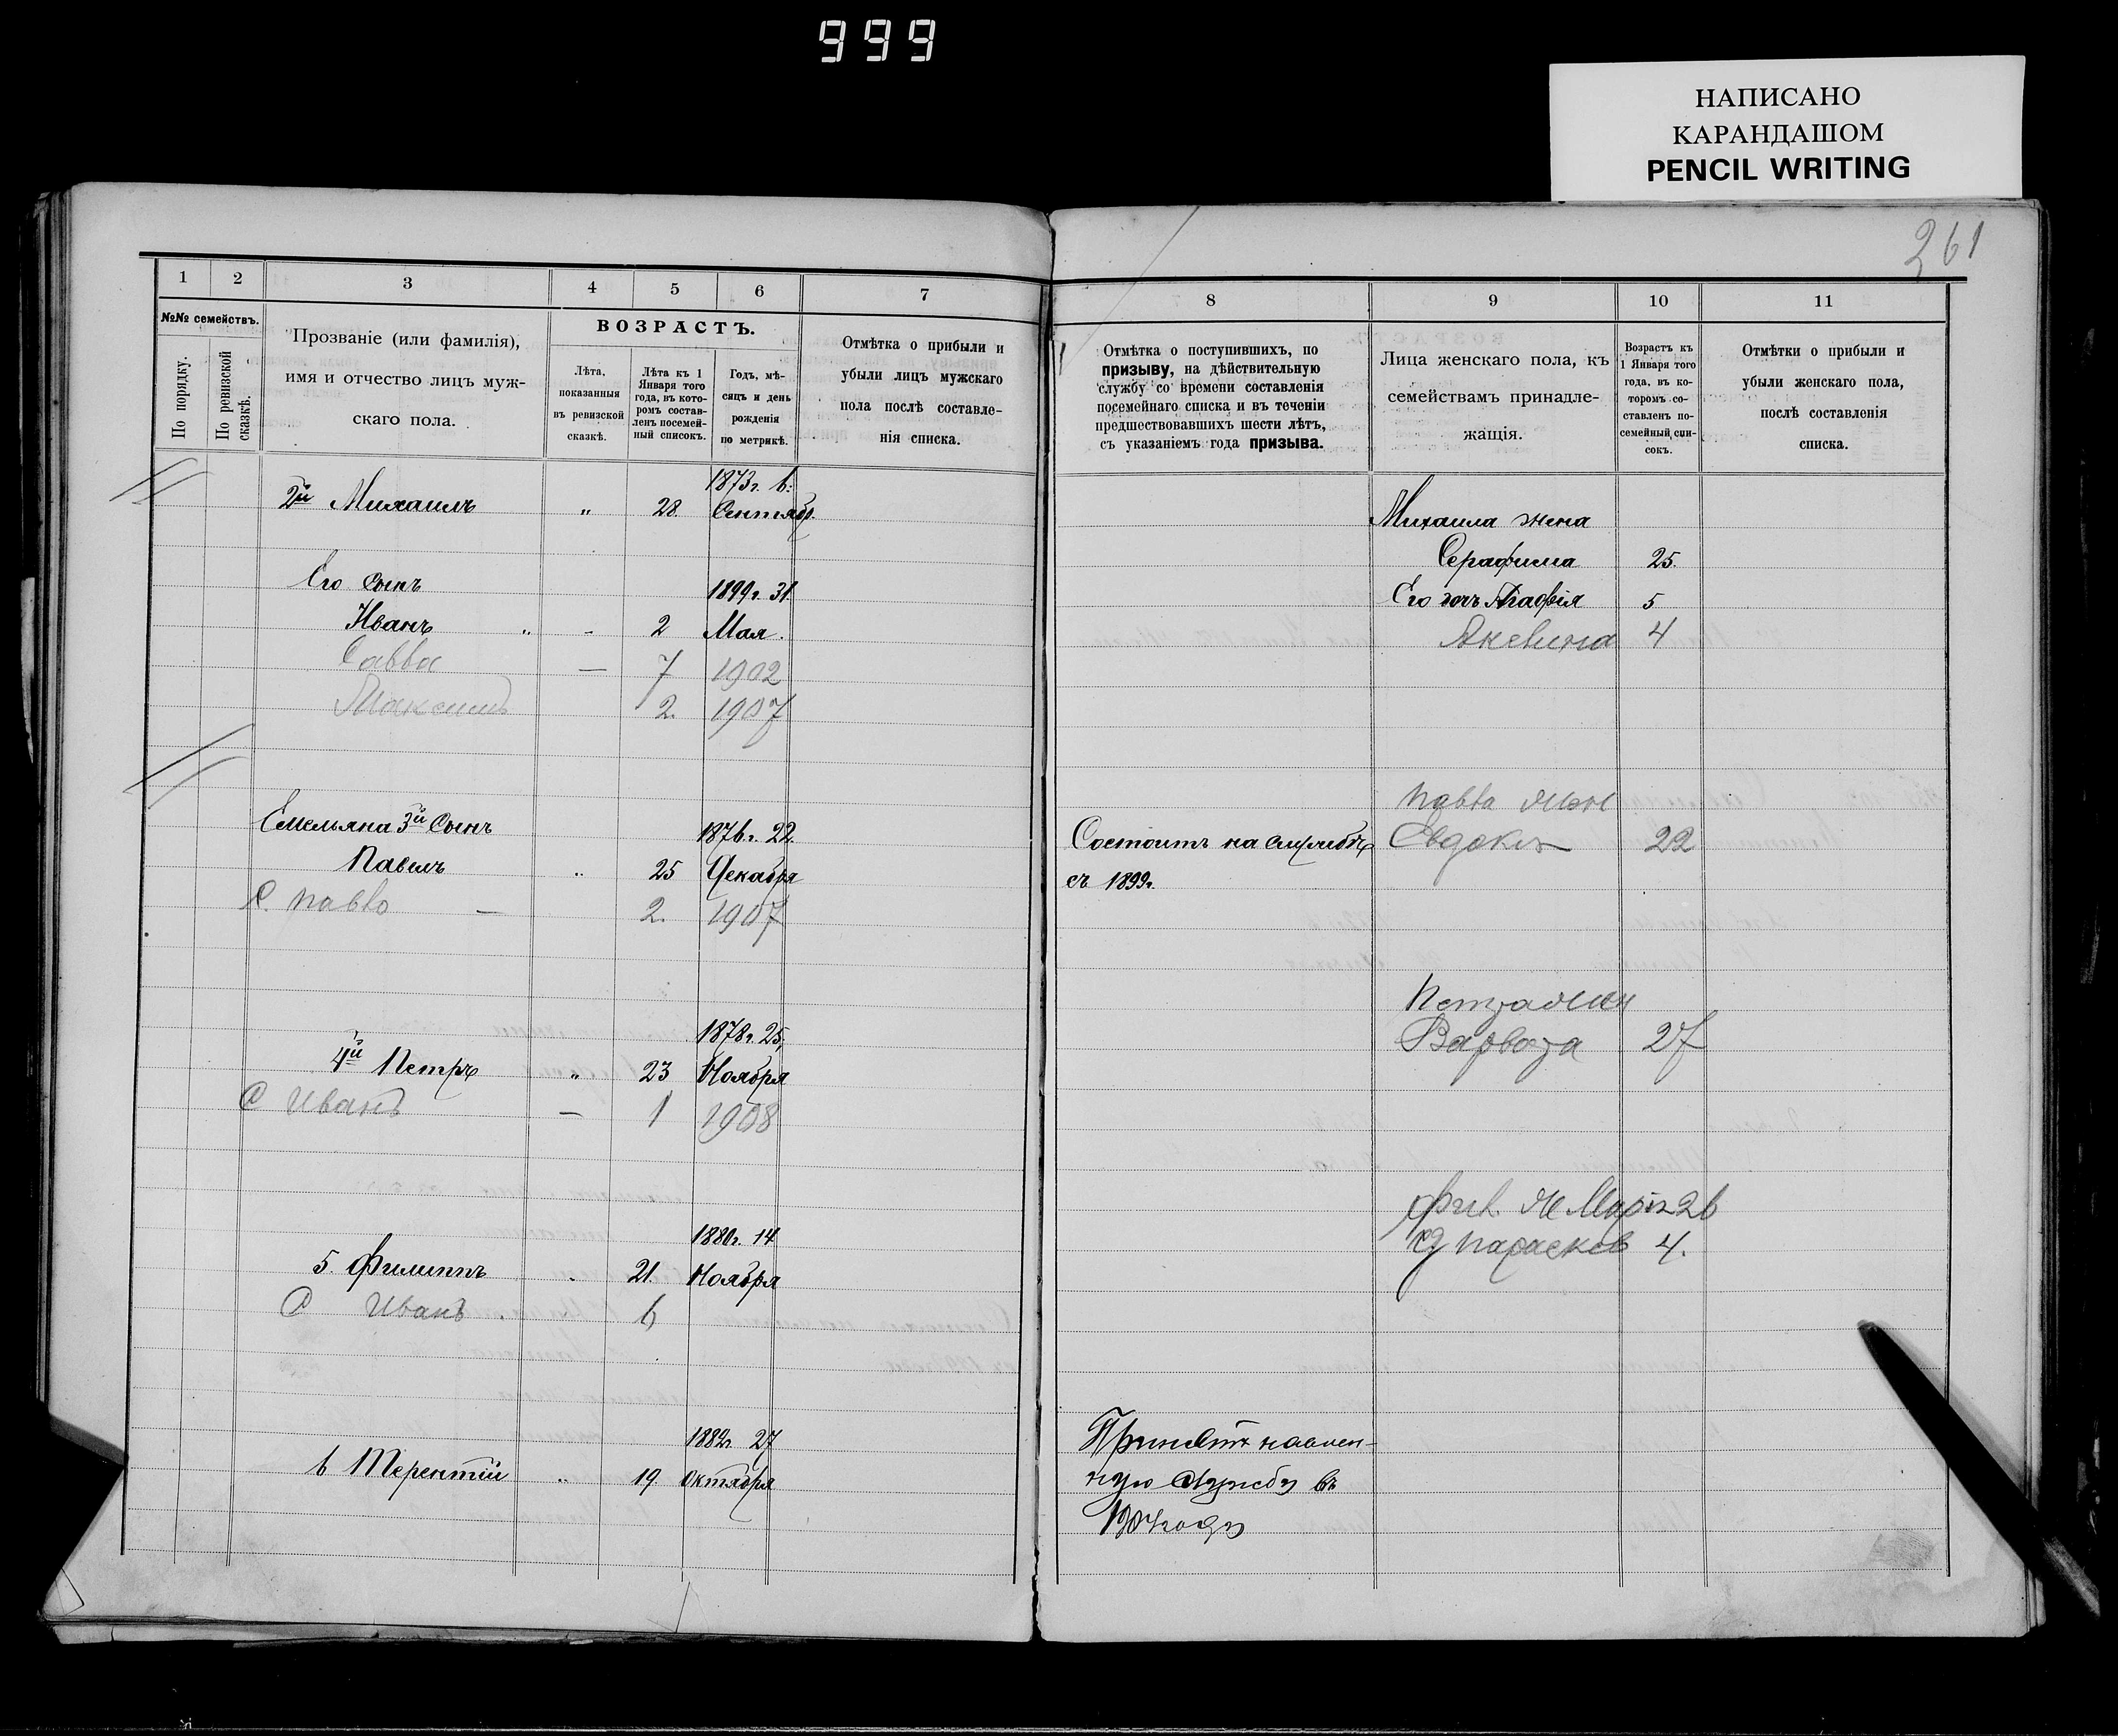 999
НАПИСАНО
КАРАНДАШОМ
PENCIL WRITING
261
1 2 3 4 5 6 7
№№ семействъ.
По порядку.
По ревизской сказкѣ.
Прозваніе (или фамилія),
имя и отчество лицъ муж-
скаго пола.
ВОЗРАСТЪ.
Лѣта,
показанныя
въ ревизской
сказкѣ.
Лѣта къ 1
Января того
года, въ кото-
ромъ состав-
ленъ посемей-
ный списокъ.
Годъ, мѣ-
сяцъ и день
рожденія
по метрикѣ.
Отмѣтка о прибыли и
убыли лицъ мужскаго
пола послѣ составле-
нія списка.
1873г. 6.
2й Михаилъ „ 28. Сентябр.
Его сынъ 1899г. 31.
Иванъ „ - 2 Мая.
Савва — 7 1902
Максимъ 2. 1907
Емельяна 3й Сынъ 1876г. 22.
Павелъ „ 25 Декабря
С. Павло — 2. 1907
1878г. 25,
4й Петръ „ 23 Ноября
С Иванъ — 1 1908
1880г. 14
5. Филиппъ 21. Ноября
С Иванъ 6
1882г. 27
6 Терентій „ 19 Октября
8 9 10 11
Отмѣтка о поступившихъ, по
призыву, на дѣйствительную
службу со времени составленія
посемейнаго списка и въ теченіи
предшествовавшихъ шести лѣтъ,
съ указаніемъ года призыва.
Лица женскаго пола, къ
семействамъ принадле-
жащія.
Возрастъ къ
1 Января того
года, въ ко-
торомъ со-
ставленъ по-
семейный спи-
сокъ.
Отмѣтки о прибыли и
убыли женскаго пола,
послѣ составленія
списка.
Михаила жена
Серафима 25.
Его дочь Агафія 5
Акевина 4
Павла жен
Состоитъ на службѣ Евдокія 22
съ 1899г.
Петра жен
Варвара 27
Фил. ж Марія 26
д Параскев 4.
Принятъ на воен-
ную службу въ
году